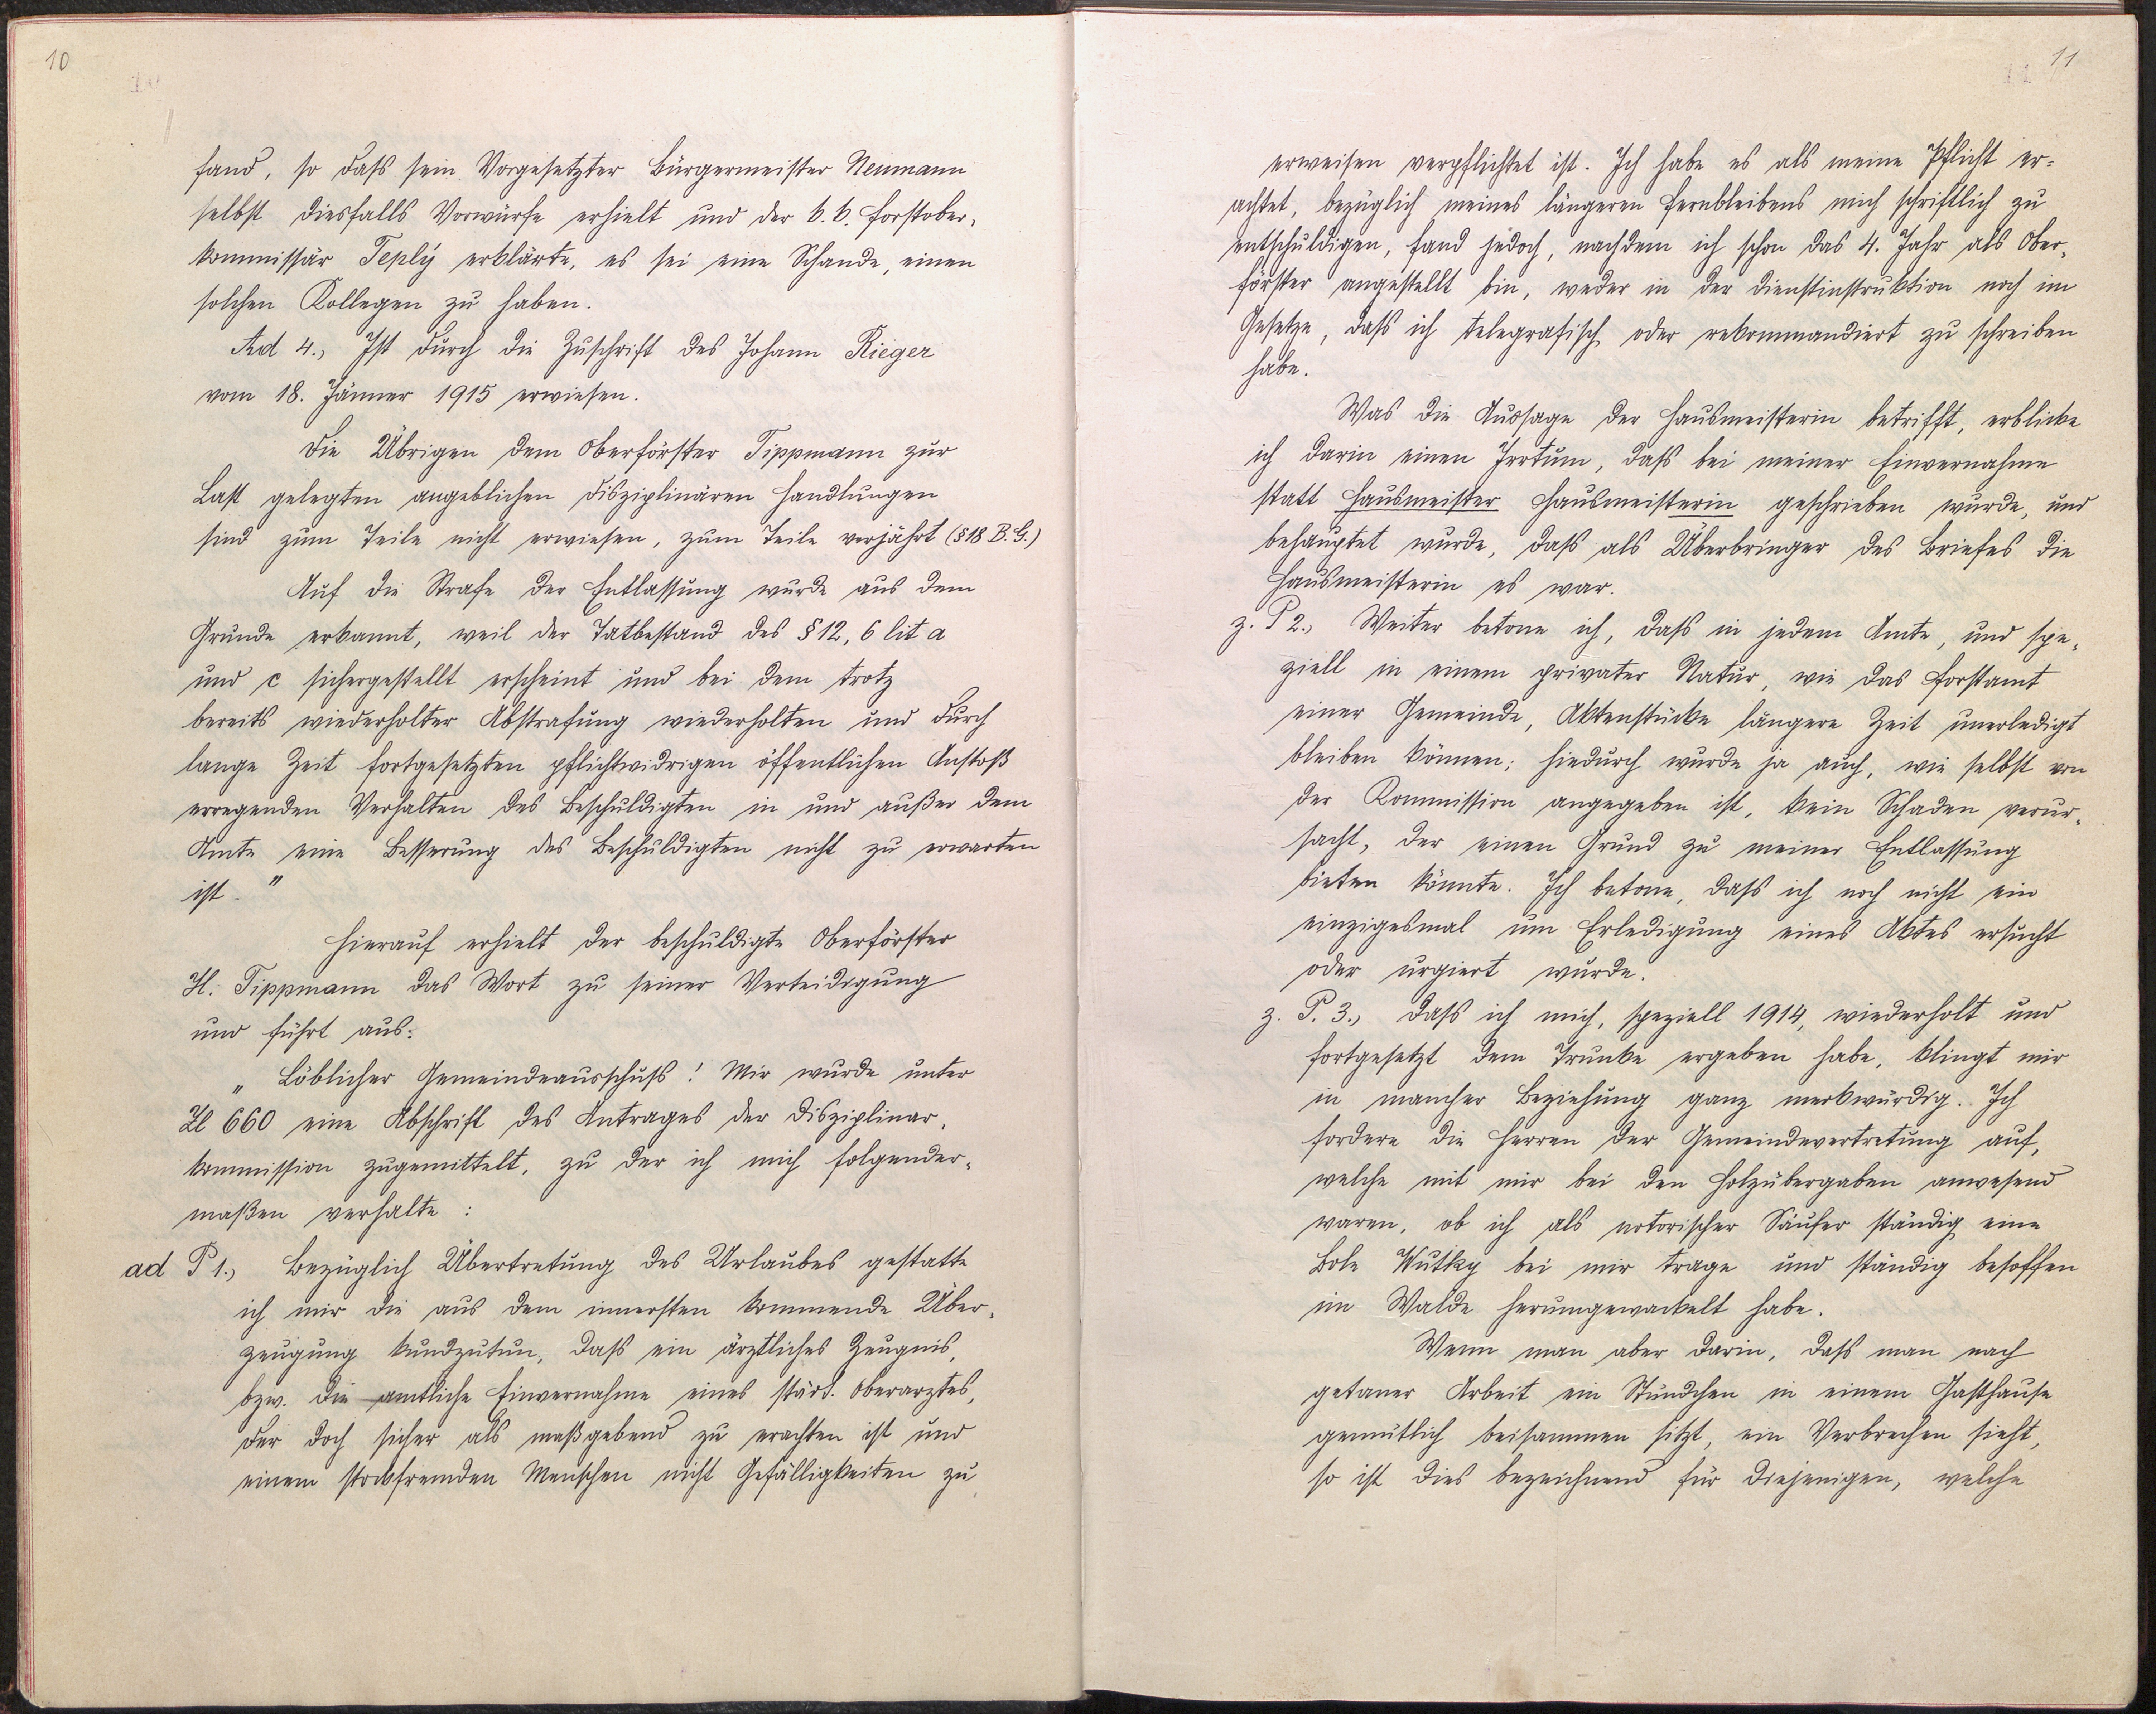 10
fand, so daß sein Vorgesetzter Bürgermeister Neumann
selbst diesfalls Vorwürfe erhielt und der k. k. Forstober-
kommissär Teplý erklärte, es sei eine Schande, einen
solchen Kollegen zu haben.
Ad 4., Ist durch die Zuschrift des Johann Rieger
vom 18. Jänner 1915 erwiesen.
Die Übrigen dem Oberförster Tippmann zur
Last gelegten angeblichen disziplinären Handlungen
sind zum Teile nicht erwiesen, zum Teile verjährt (§ 18 B. G.)
Auf die Strafe der Entlassung wurde aus dem
Grunde erkannt, weil der Tatbestand des § 12, 6 lit a
und c sichergestellt erscheint und bei dem trotz
bereits wiederholter Abstrafung wiederholten und durch
lange Zeit fortgesetzten pflichtwidrigen öffentlichen Anstoß
erregenden Verhalten des Beschuldigten in und außer dem
Amte eine Besserung des Beschuldigten nicht zu erwarten
ist."
Hierauf erhielt der beschuldigte Oberförster
H. Tippmann das Wort zu seiner Verteidigung
und führt aus:
„Löblicher Gemeindeausschuß! Mir wurde unter
Zl 660 eine Abschrift des Antrages der Disziplinar-
kommission zugemittelt, zu der ich mich folgender-
maßen verhalte:
ad P 1., Bezüglich Übertretung des Urlaubes gestatte
ich mir die aus dem innersten kommende Über-
zeugung kundzutun, daß ein ärztliches Zeugnis,
bzw. die amtliche Einvernahme eines städt. Oberarztes,
der doch sicher als maßgebend zu erachten ist und
einem stockfremden Menschen nicht Gefälligkeiten zu
11
erweisen verpflichtet ist. Ich habe es als meine Pflicht er-
achtet, bezüglich meines längeren Fernbleibens mich schriftlich zu
entschuldigen, fand jedoch, nachdem ich schon das 4. Jahr als Ober-
förster angestellt bin, weder in der Dienstinstruktion noch im
Gesetze, daß ich telegrafisch oder rekommandiert zu schreiben
habe.
Was die Aussage der Hausmeisterin betrifft, erblicke
ich darin einen Irrtum, daß bei meiner Einvernahme
statt Hausmeister Hausmeisterin geschrieben wurde, und
behauptet wurde, daß als Überbringer des Briefes die
Hausmeisterin es war.
z. P 2., Weiter betone ich, daß in jedem Amte, und spe-
ziell in einem privater Natur, wie das Forstamt
einer Gemeinde, Aktenstücke längere Zeit unerledigt
bleiben können; hiedurch wurde ja auch, wie selbst von
der Kommission angegeben ist, kein Schaden verur-
sacht, der einen Grund zu meiner Entlassung
bieten könnte. Ich betone, daß ich noch nicht ein
einzigesmal um Erledigung eines Aktes ersucht
oder urgiert wurde.
z. P. 3., Daß ich mich, speziell 1914, wiederholt und
fortgesetzt dem Trunke ergeben habe, klingt mir
in mancher Beziehung ganz merkwürdig. Ich
fordere die Herren der Gemeindevertretung auf,
welche mit mir bei den Holzübergaben anwesend
waren, ob ich als notorischer Säufer ständig eine
Bole Wutky bei mir trage und ständig besoffen
im Walde herumgewackelt habe.
Wenn man aber darin, daß man nach
getaner Arbeit ein Stündchen in einem Gasthause
gemütlich beisammen sitzt, ein Verbrechen sieht,
so ist dies bezeichnend für diejenigen, welche